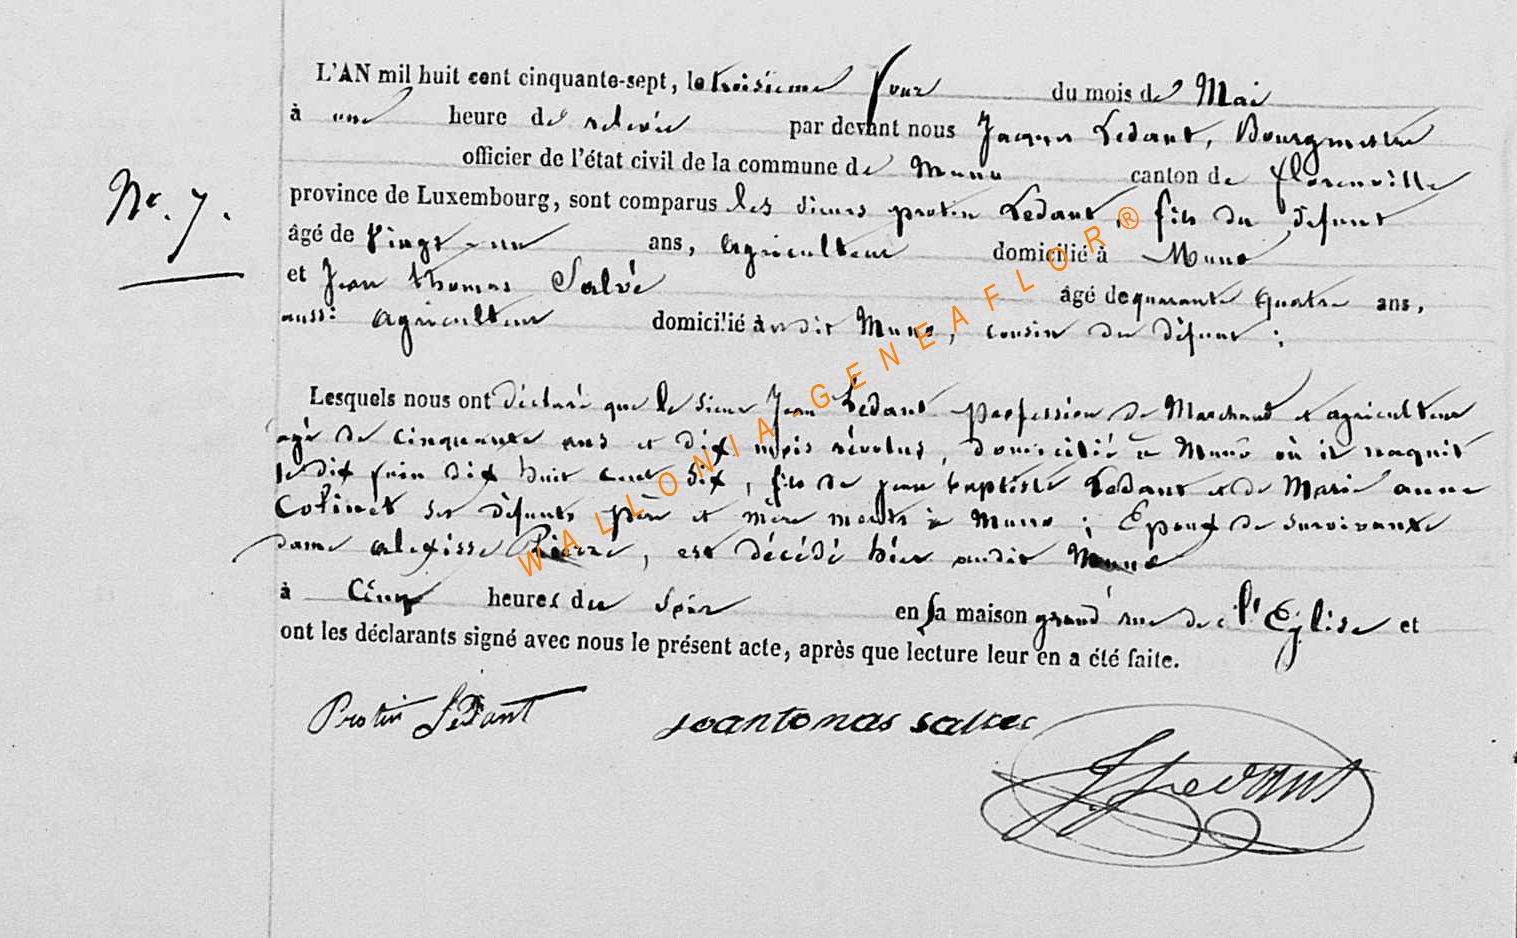 L'AN mil huit cent cinquante-sept, le troisieme jour du mois de Mai
à une heure de relevée par devant nous Jacques Ledant, Bourgmestre
officier de l'état civil de la commune de Muno canton de florenville
N°. 7.
province de Luxembourg, sont comparus les sieurs protin Ledant, fils du défunt
âgé de vingt-un ans, agriculteur domicilié à Muno
et Jean thomas Salvé âgé de quarante quatre ans,
aussi agriculteur domicilié au dit Muno, cousin du défunt ;
Lesquels nous ont déclaré que le sieur Jean Ledant profession de Marchand et agriculteur
agé de cinquante ans et dix mois révolus, domicilié à Muno où il naquit
le dix juin dix huit cent six, fils de jean baptiste Ledant et de Marie anne
Colinet ses défunts père et mère morts à Muno ; Epoux de survivante
dame alexisse Pierre, est décédé hier audit Muno
à Cinq heures du soir en sa maison grand rue de l'Eglise et
ont les déclarants signé avec nous le présent acte, après que lecture leur en a été faite.
Protin Ledant
J Ledant
WALLONIA-GENEAFLOR®